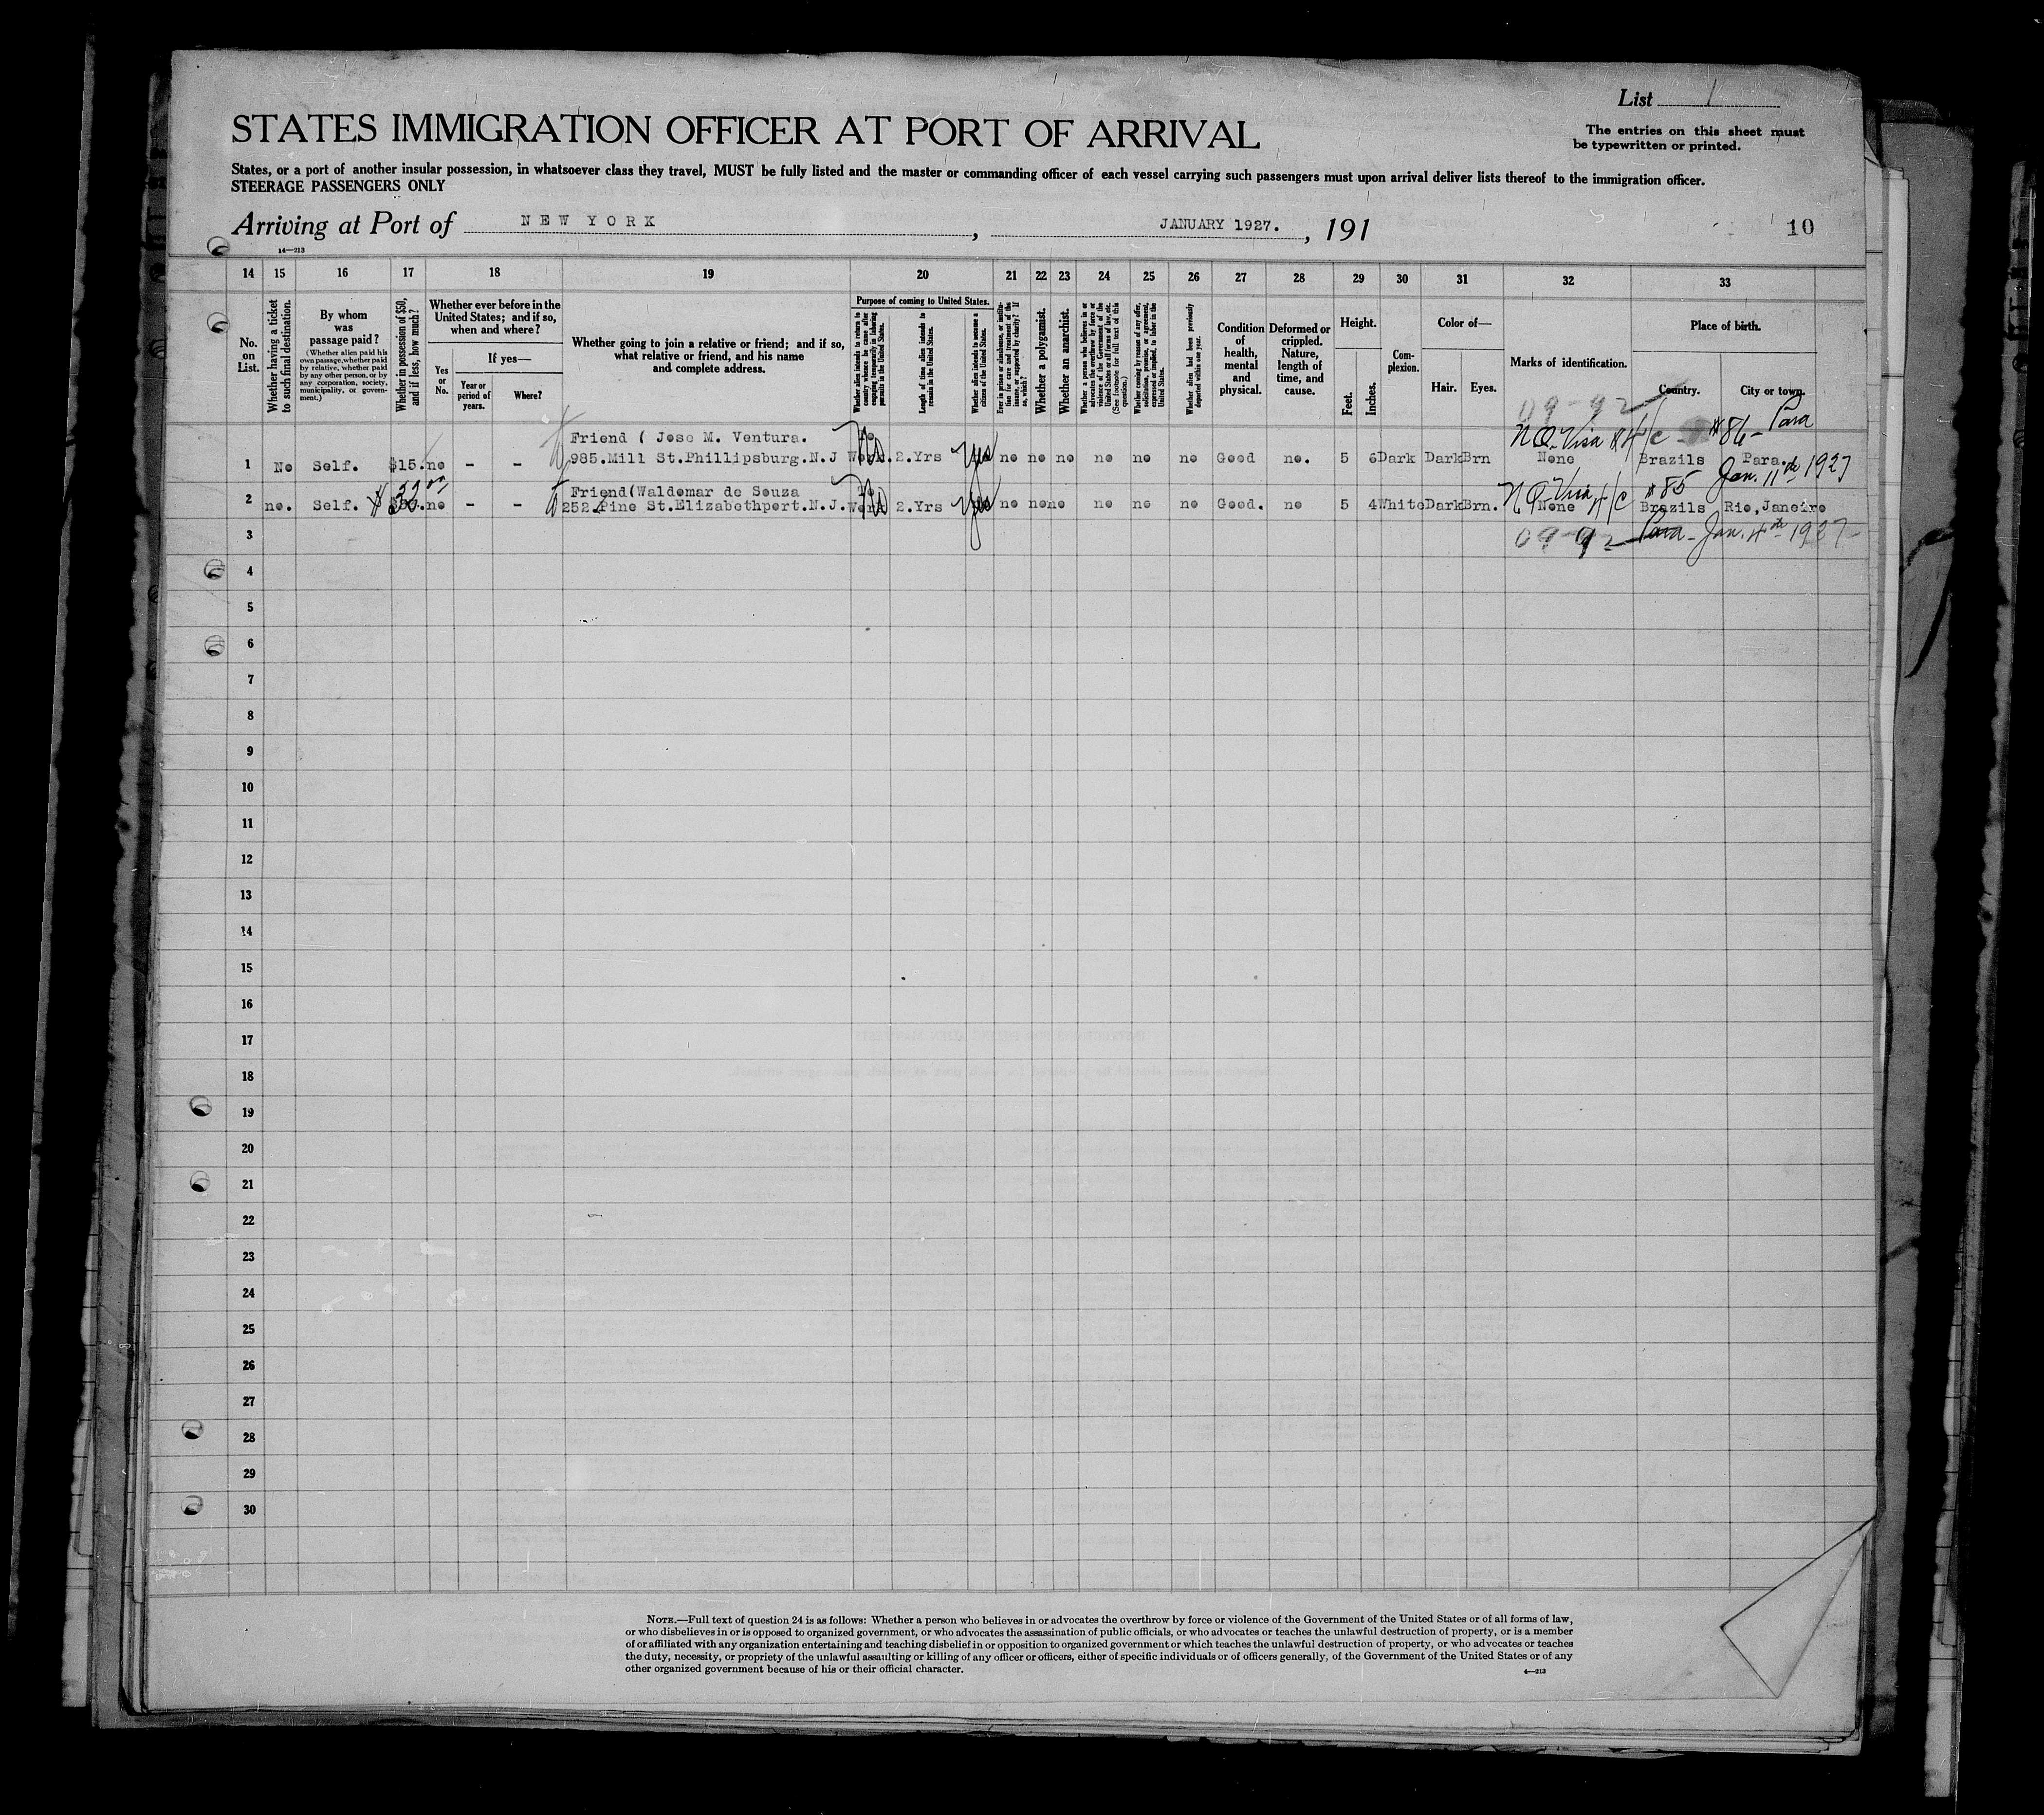 List 1
STATES IMMIGRATION OFFICER AT PORT OF ARRIVAL
The entries on this sheet must
be typewritten or printed.
States, or a port of another insular possession, in whatsoever class they travel, MUST be fully listed and the master or commanding officer of each vessel carrying such passengers must upon arrival deliver lists thereof to the immigration officer.
STEERAGE PASSENGERS ONLY
Arriving at Port of NEW YORK , JANUARY 1927. , 191 10
14—213
14 15 16 17 18 19 20 21 22 23 24 25 26 27 28 29 30 31 32 33
No. on List.
Whether having a ticket to such final destination.
By whom was passage paid?
(Whether alien paid his own passage, whether paid by relative, whether paid by any other person, or by any corporation, society, municipality, or government.)
Whether in possession of $50, and if less, how much?
Whether ever before in the United States; and if so, when and where?
Yes or No.
If yes—
Year or period of years.
Where?
Whether going to join a relative or friend; and if so, what relative or friend, and his name and complete address.
Purpose of coming to United States.
Whether alien intends to return to country whence he came after engaging temporarily in laboring pursuits in the United States.
Length of time alien intends to remain in the United States.
Whether alien intends to become a citizen of the United States.
Ever in prison or almshouse, or institution for care and treatment of the insane, or supported by charity? If so, which?
Whether a polygamist.
Whether an anarchist.
Whether a person who believes in or advocates the overthrow by force or violence of the Government of the United States or all forms of law, etc. (See footnote for full text of this question.)
Whether coming by reason of any offer, solicitation, promise, or agreement, expressed or implied, to labor in the United States.
Whether alien had been previously deported within one year.
Condition of health, mental and physical.
Deformed or crippled. Nature, length of time, and cause.
Height.
Feet.
Inches.
Complexion.
Color of—
Hair. Eyes.
Marks of identification.
Place of birth.
Country. City or town.
09-92
N.Q. Visa #4/c - #86- Para
Friend ( Jose M. Ventura.
1 No Self. $15. no - - 985.Mill St.Phillipsburg.N.J No Work. 2.Yrs yes no no no no no no Good no. 5 6 Dark Dark Brn None Brazils Para.
Jan. 11th 1927
Friend(Waldemar de Souza
N.Q. Visa 4/c #85
2 no. Self. $50. no - - 252.Pine St.Elizabethport.N.J. No Work 2.Yrs yes no no no no no no Good. no 5 4 White Dark Brn. None Brazils Rio,Janeiro
3 09-92 Para - Jan. 4th 1927
4
5
6
7
8
9
10
11
12
13
14
15
16
17
18
19
20
21
22
23
24
25
26
27
28
29
30
NOTE.—Full text of question 24 is as follows: Whether a person who believes in or advocates the overthrow by force or violence of the Government of the United States or of all forms of law,
or who disbelieves in or is opposed to organized government, or who advocates the assassination of public officials, or who advocates or teaches the unlawful destruction of property, or is a member
of or affiliated with any organization entertaining and teaching disbelief in or opposition to organized government or which teaches the unlawful destruction of property, or who advocates or teaches
the duty, necessity, or propriety of the unlawful assaulting or killing of any officer or officers, either of specific individuals or of officers generally, of the Government of the United States or of any
other organized government because of his or their official character.
4—213